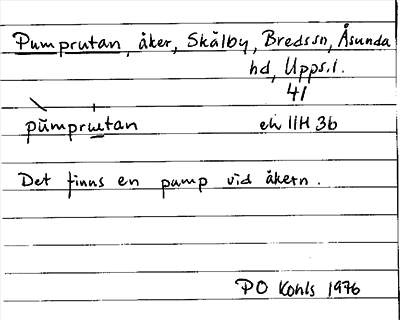 Pumprutan, åker, Skälby, Breds sn, Åsunda
hd, Upps.l.
41
pùmprutan
ek 11H 3b
Det finns en pump vid åkern.
PO Kohls 1976